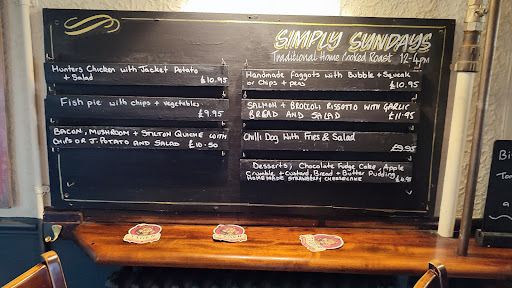 SIMPLY SUNDAYS
Traditional Home Cooked Roast 12-4pm
Hunters Chicken with Jacket Potato
+ Salad £10.95
Fish pie with chips + vegetables
£9.95
BACON, MUSHROOM + STILTON QUICHE WITH
CHIPS OR J. POTATO AND SALAD £10.50
Handmade faggots with Bubble + Squeak
or Chips + peas £10.95
SALMON + BROCCOLI RISSOTTO WITH GARLIC
BREAD AND SALAD £11.95
Chilli Dog With Fries & Salad
£9.95
Desserts; Chocolate Fudge Cake, Apple
Crumble + Custard, Bread + Butter Pudding
HOMEMADE STRAWBERRY CHEESECAKE